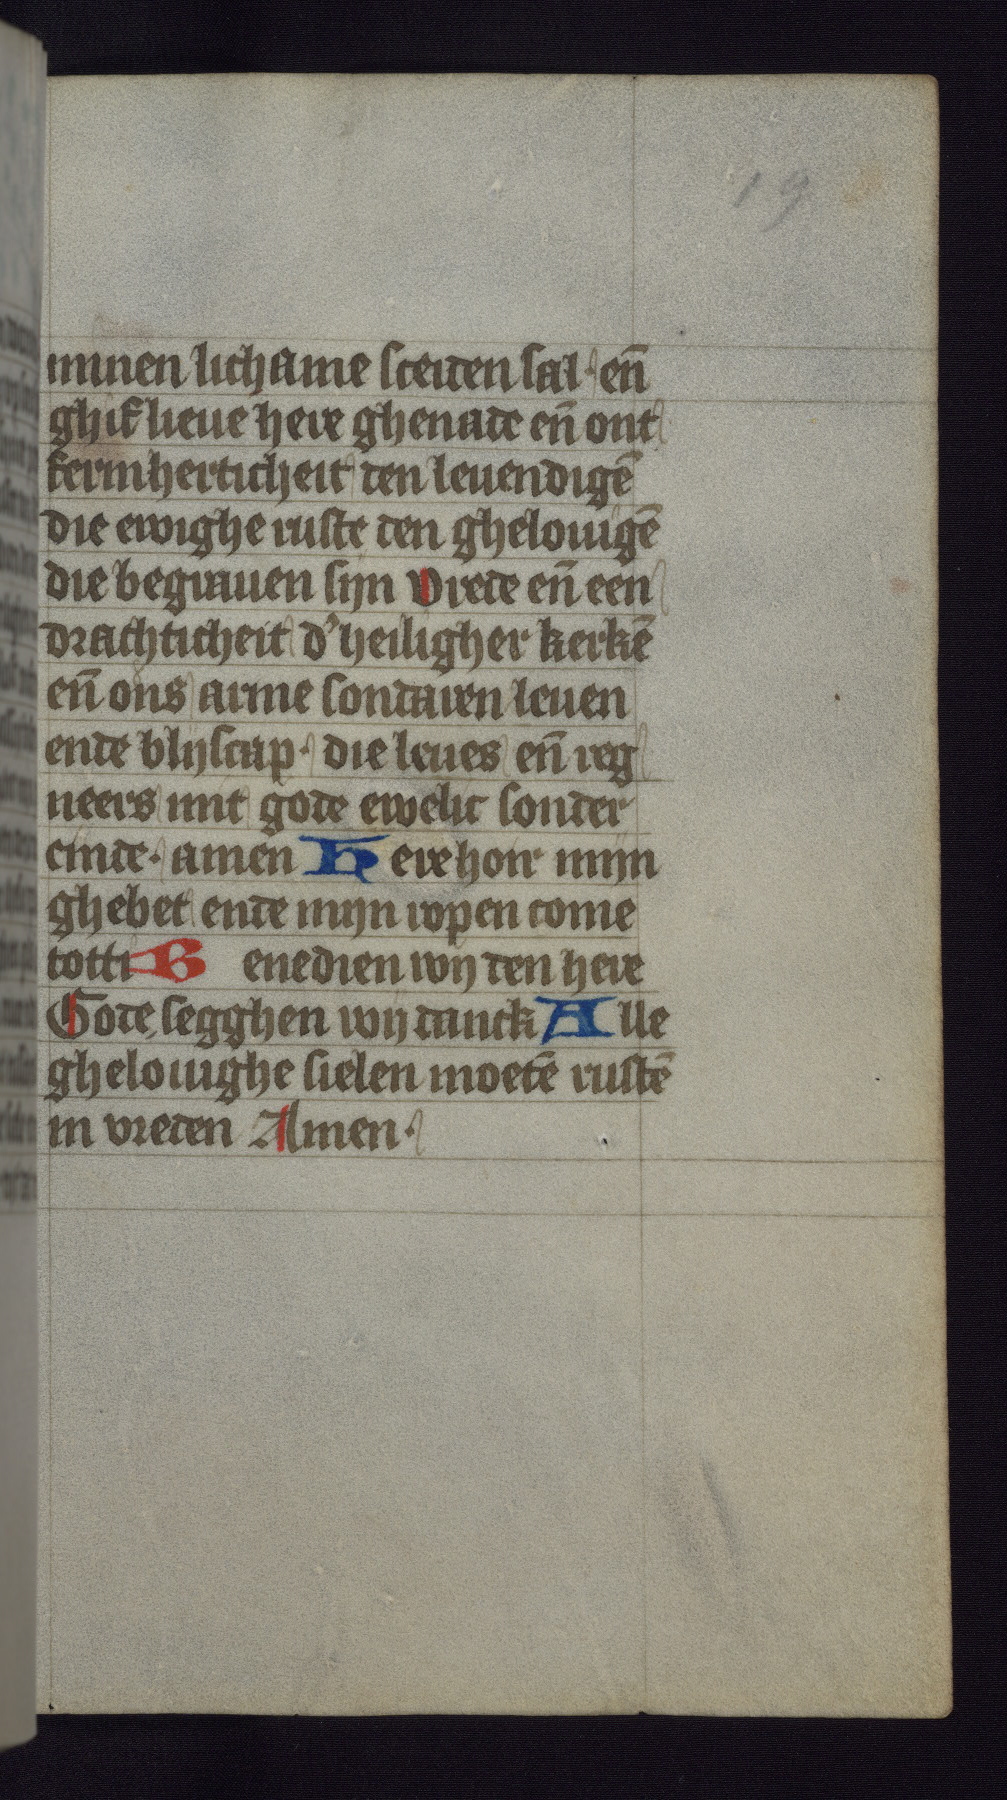 19
minen lichame sceiden sal · en̄
ghif lieue here ghenade en̄ ont
fermherticheit den leuendigē
die ewighe ruste den ghelouigē
die begrauen sijn Vrede en̄ een
drachticheit d' heiligher kerkē
en̄ ons arme sondaren leuen
ende blijscap · die leues en̄ reg
neers mit gode ewelic sonder
einde · amen Here hoir mijn
ghebet ende mijn ropen come
totti Benedien wij den here
Gode segghen wij danck Alle
ghelouighe sielen moetē rustē
in vreden Amen ·